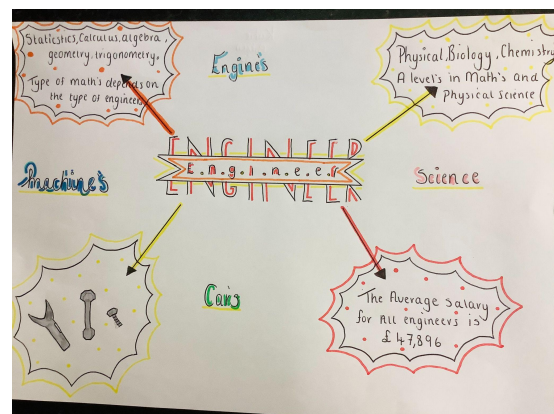 Statistics, Calculus, algebra,
geometry, trigonometry.
Type of math's depends on
the type of engineer
Engine's
Physical, Biology, Chemistry
A level's in Math's and
Physical Science
ENGINEER
E.n.g.i.n.e.e.r
Machine's
Science
Car's
The Average salary
for All engineers is
£47,896